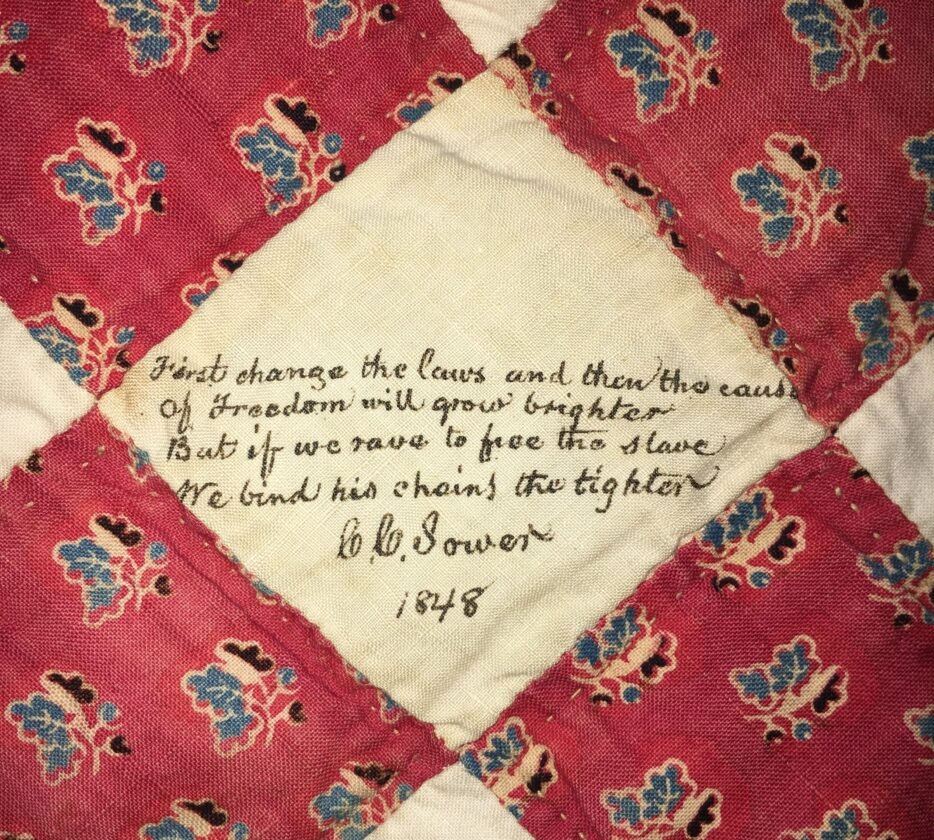 First change the laws and then the cause
Of Freedom will grow brighter
But if we rave to free the slave
We bind his chains the tighter
C. C. Sower
1848